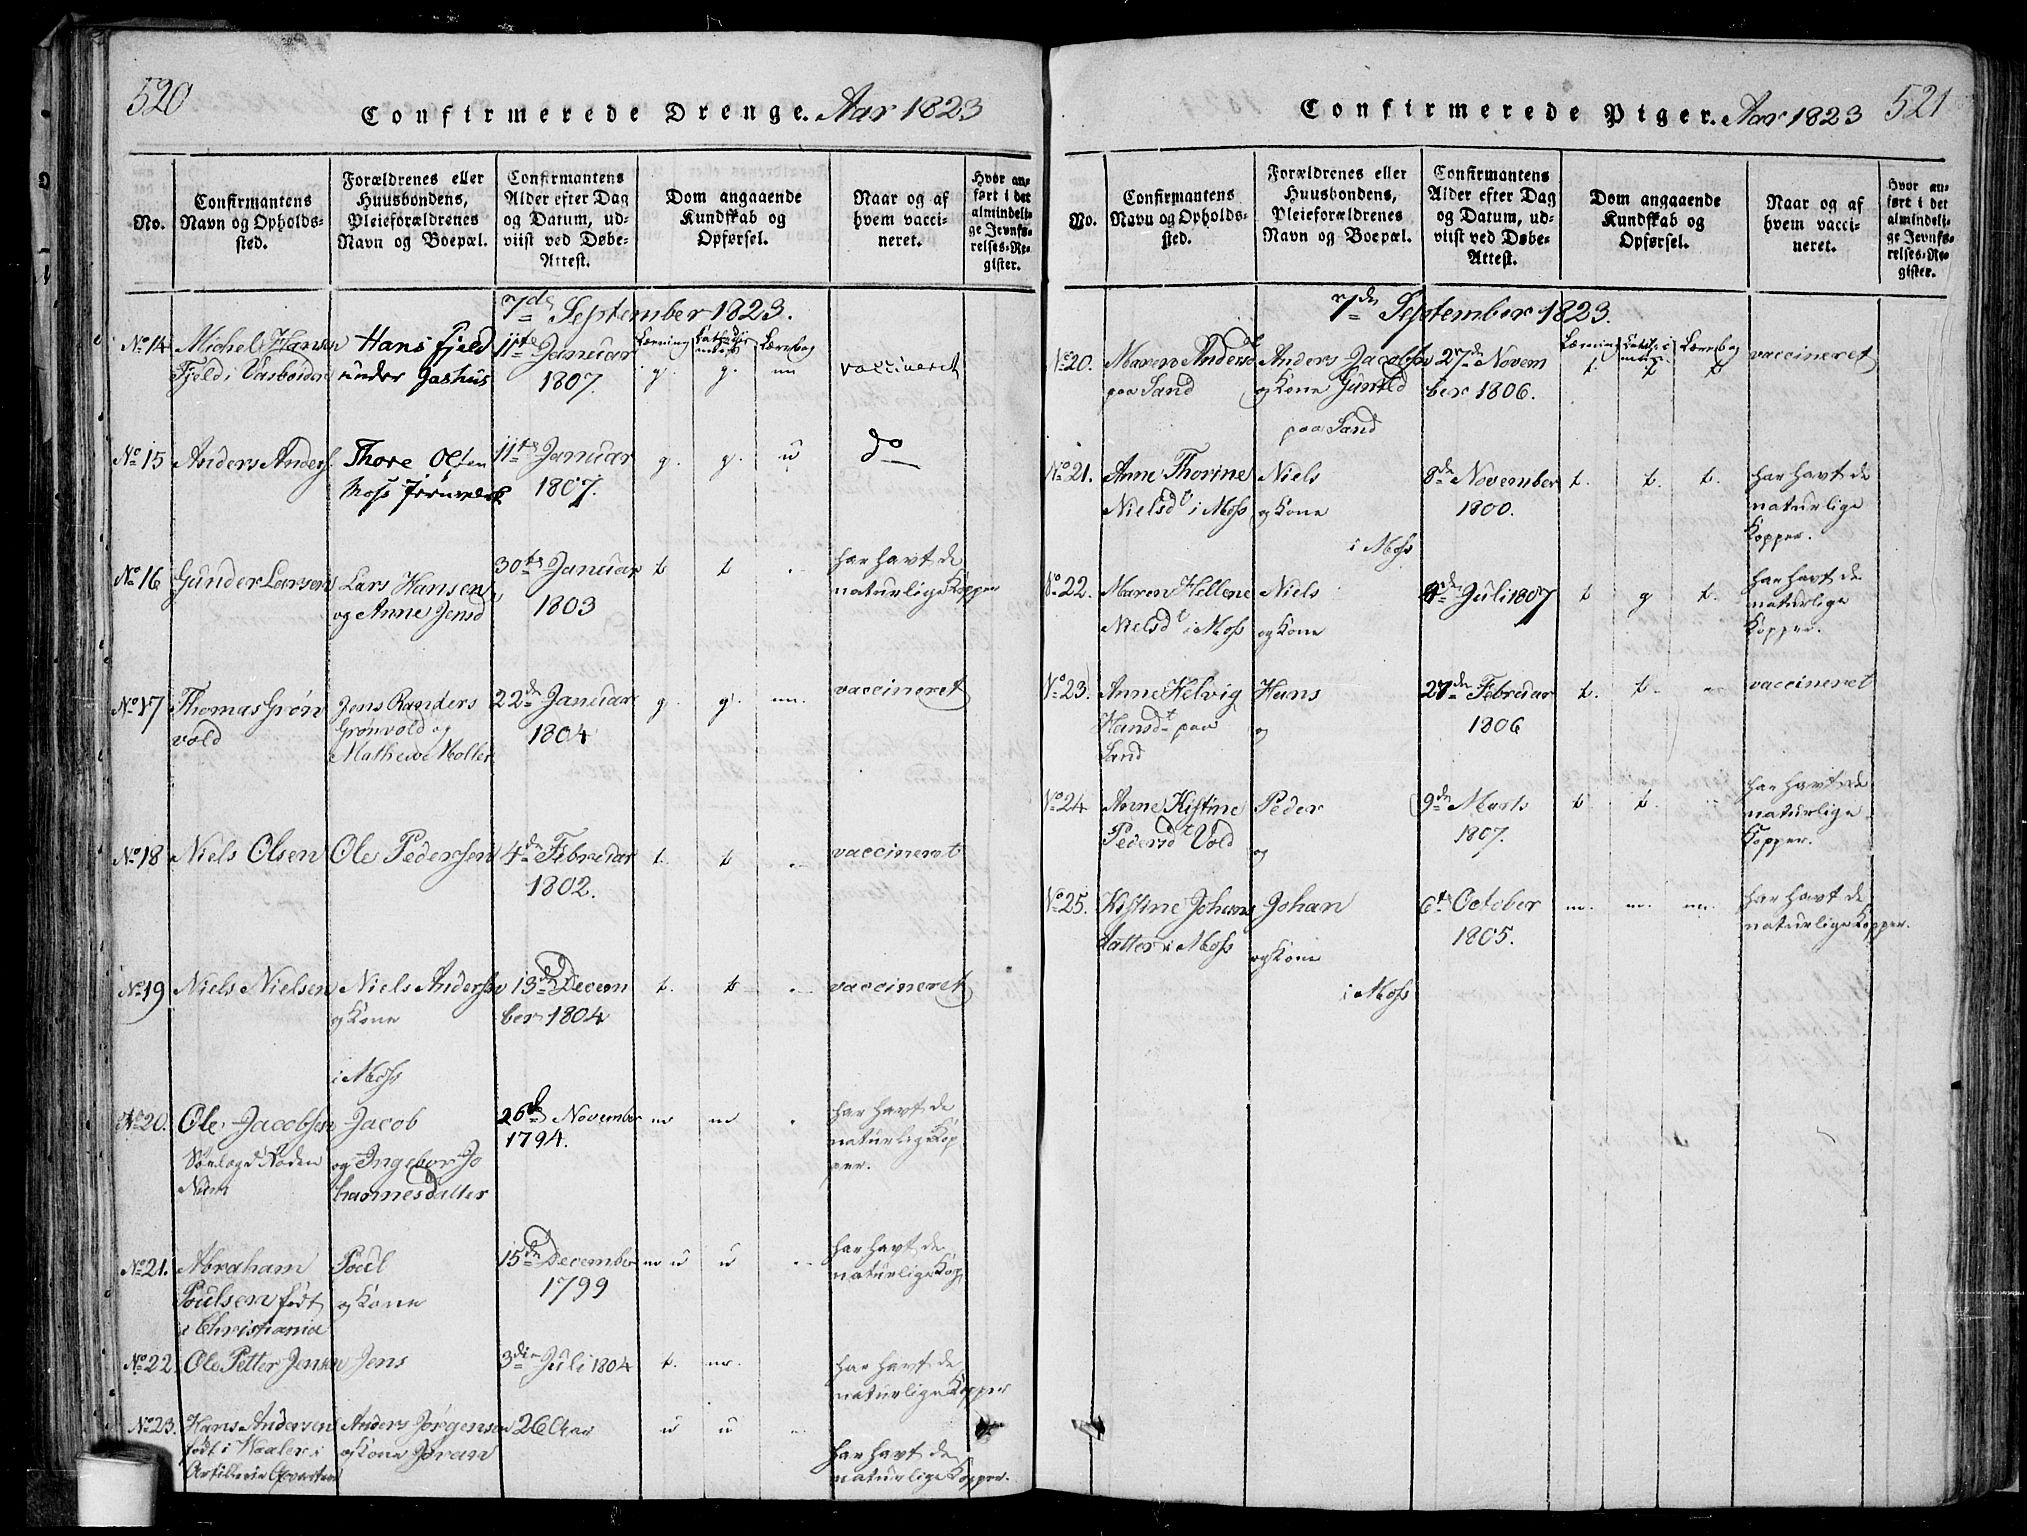 520
Confirmerede Drenge. Aar 1823
No.
Confirmantens Navn og Opholdssted.
Forældrenes eller Huusbondens, Pleieforældrenes Navn og Boepæl.
Confirmantens Alder efter Dag og Datum, udviist ved Døbe-Attest.
Dom angaaende Kundskab og Opførsel.
Naar og af hvem vaccineret.
Hvor anført i det almindelige Jevnførelses-Register.
7de September 1823.
No 14 Michel Hansen Hans Fjeld 11te Januar Læsning Lærebog
Fjeld i under 1807. g. g. m vaccineret
No 15 Anders Anders. Thore Olsen 11te Januar g. g. u do
Moss Jernverk 1807.
No 16 Gunder Larsen Lars Hansen 30te Januar t t har havt de
og Anne Jensd 1803 naturlige Kopper
No 17 Thomas Grøn Jens Randers 22de Januar g. g. m. vaccineret
vold Grønvold og 1804
Mathewe Moller
No 18 Niels Olsen Ole Pedersen 4de Februar t. t vaccineret
1802.
No 19 Niels Nielsen Niels Andersen 13de Decem t. t vaccineret
og Kone ber 1804
i Moss
No 20. Ole Jacobsen Jacob 26de November m m har havt de
og Ingebor Jo 1794. naturlige Kop
hannesdatter per.
No 21. Abraham Poul 15de December m u u har havt de
Poulsen født og Kone 1799 naturlige Kop
i Christiania
No 22. Ole Petter Jensen Jens 3die Juli 1804 t. m. har havt de
naturlige Kopper
No 23. Hans Andersen Anders Jørgensen 26 Aar u u
født i Vaaler i og Kone Joran har havt de
Artillerie naturlige Kopper.
Confirmerede Piger. Aar 1823 521
No.
Confirmantens Navn og Opholdssted.
Forældrenes eller Huusbondens, Pleieforældrenes Navn og Boepæl.
Confirmantens Alder efter Dag og Datum, udviist ved Døbe-Attest.
Dom angaaende Kundskab og Opførsel.
Naar og af hvem vaccineret.
Hvor anført i det almindelige Jevnførelses-Register.
7de September 1823.
No 20. Maren Andersd Anders Jacobsen 27de Novem Læsning Lærebog vaccineret
paa Sand og Kone Gunild ber 1806. t. t t
paa Sand
No 21. Anne Thorine Niels 8de November t. t. t. har havt de
Nielsdt i Moss og Kone 1800. naturlige
i Moss Kopper.
No 22. Maren Hellene Niels Juli 1807 t g t. har havt de
Nielsdt i Moss og Kone naturlige
Kopper.
No 23. Anne Helvig Hans 27de Februar t. t. vaccineret
Hansdt paa og 1806
Sand
No 24 Anne Kistine Peder 9de Marts t. t. har havt de
Pedersdt Vold og 1807. naturlige
Kopper.
No 25. Kistine Johans Johan 6te October m. m. m. har havt de
datter i Moss og Kone 1805. naturlige Kopper.
i Moss